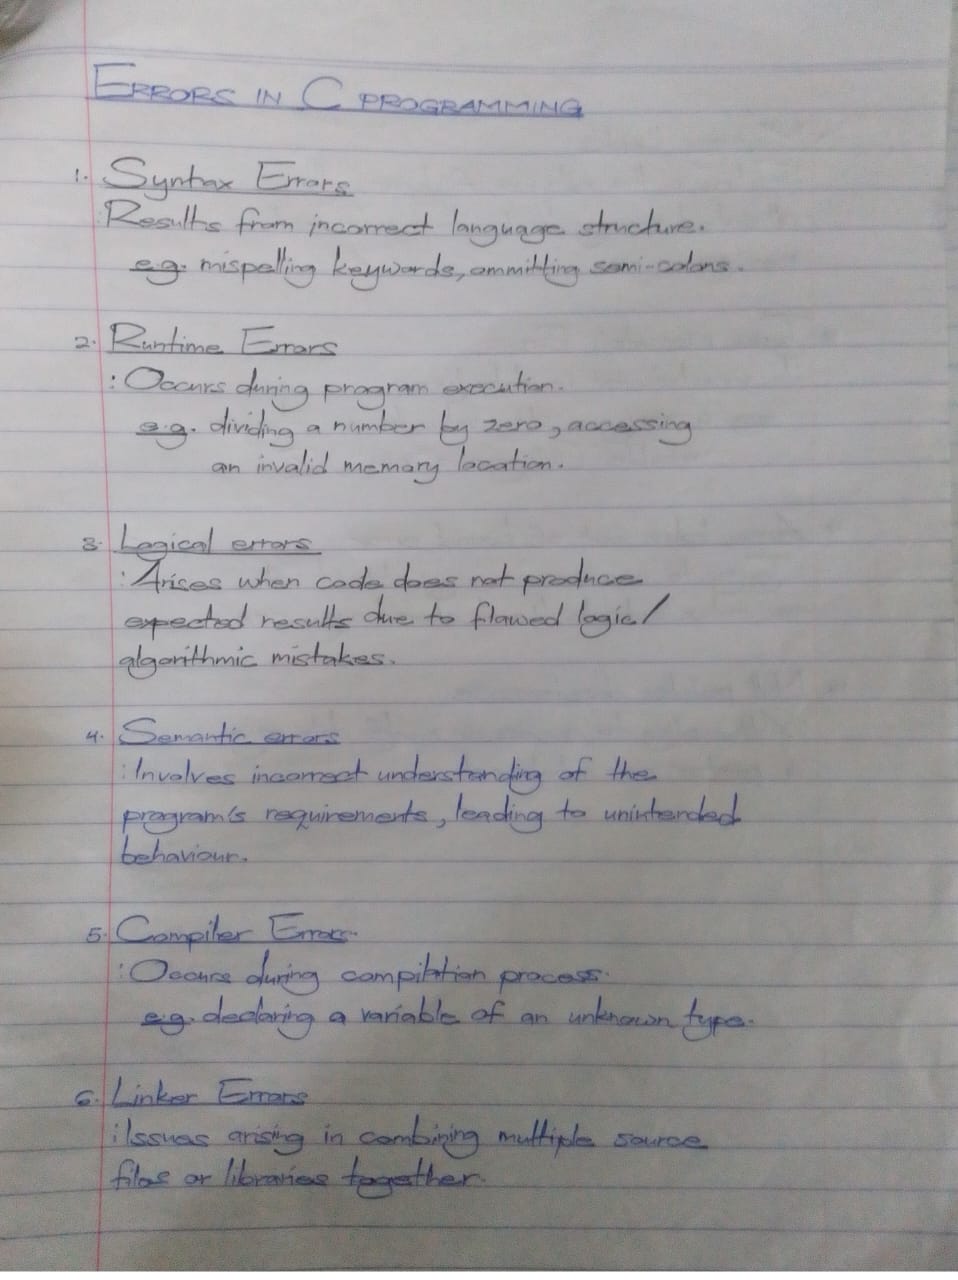 ERRORS IN C PROGRAMMING
1. Syntax Errors
: Results from incorrect language structure.
e.g. mispelling keywords, ommitting semi-colons.
2. Runtime Errors
: Occurs during program execution.
e.g. dividing a number by zero, accessing
an invalid memory location.
3. Logical errors
: Arises when code does not produce
expected results due to flawed logic/
algorithmic mistakes.
4. Semantic errors
: Involves incorrect understanding of the
program's requirements, leading to unintended
behaviour.
5. Compiler Errors.
: Occurs during compilation process.
e.g. declaring a variable of an unknown type.
6. Linker Errors
: Issues arising in combining multiple source
files or libraries together.